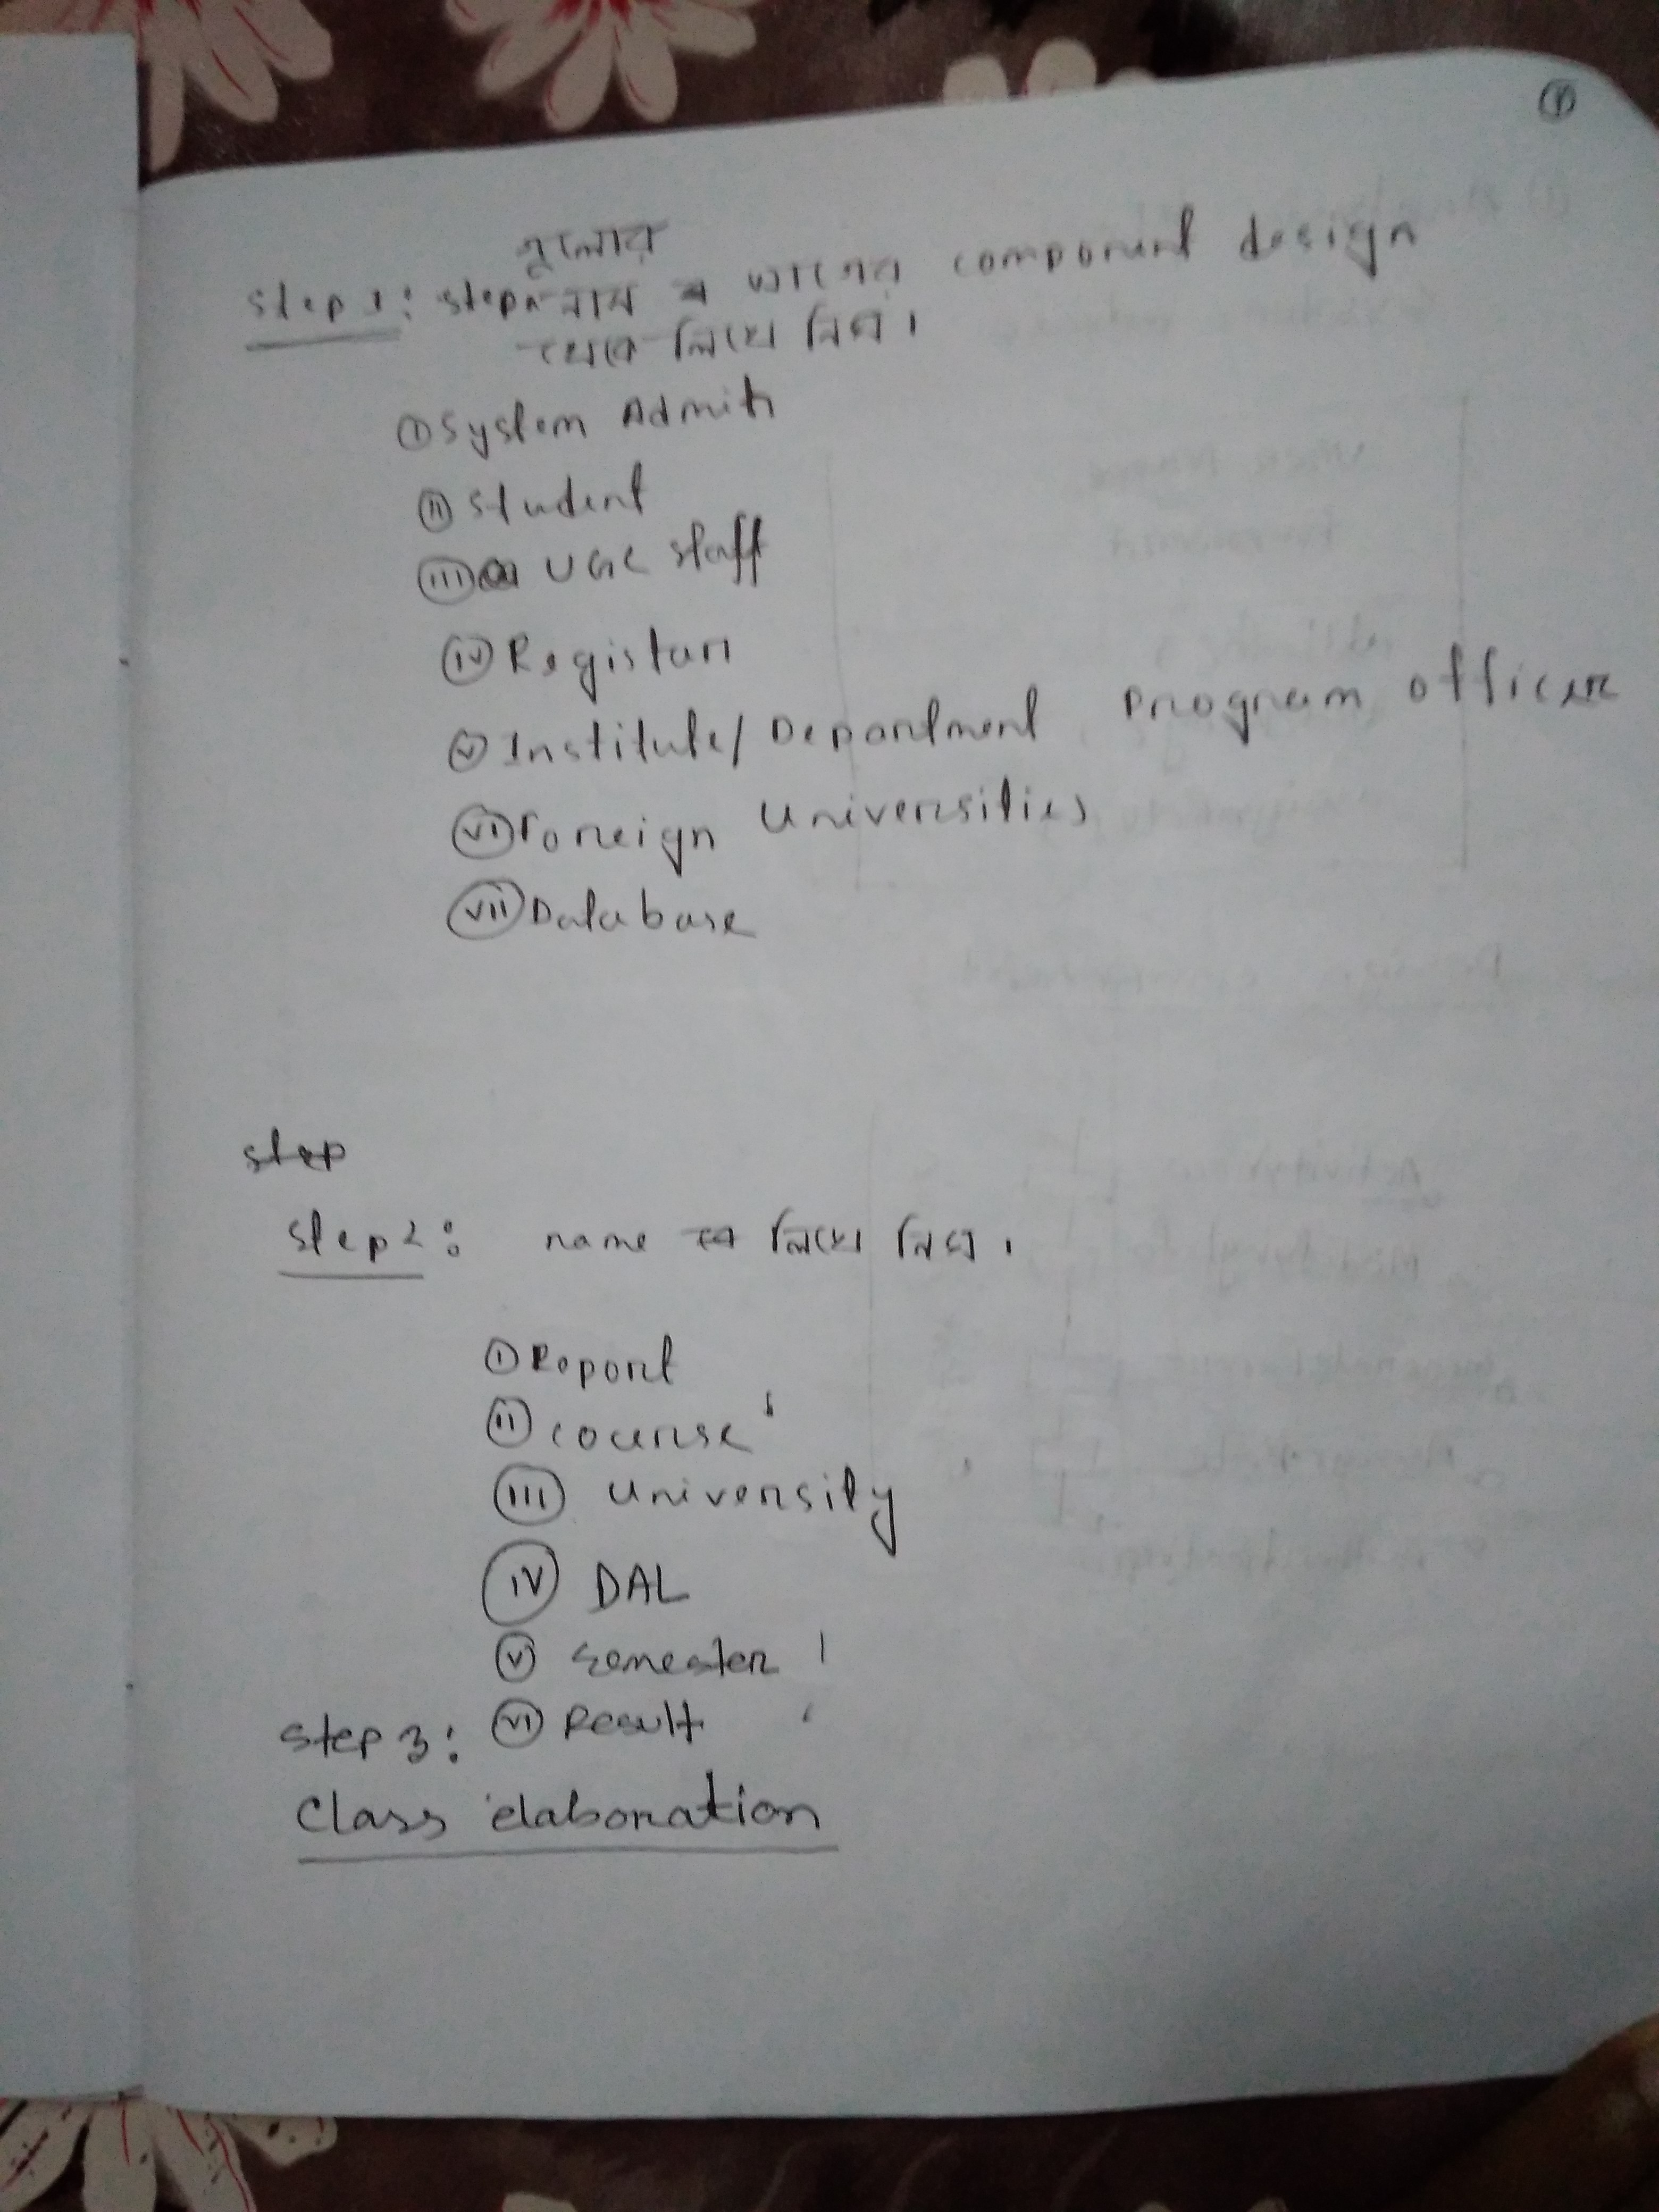 গুলোর
step 1: step নাম আগের component design
থেকে লিখে নিব।
i System Admin
ii Student
iii UGC staff
iv Registarr
v Institute/Department Program officer
vi Foreign Universities
vii Database
step
step 2: name লিখে নিব।
i Report
ii course
iii University
iv DAL
v semester
vi Result
step 3:
Class elaboration